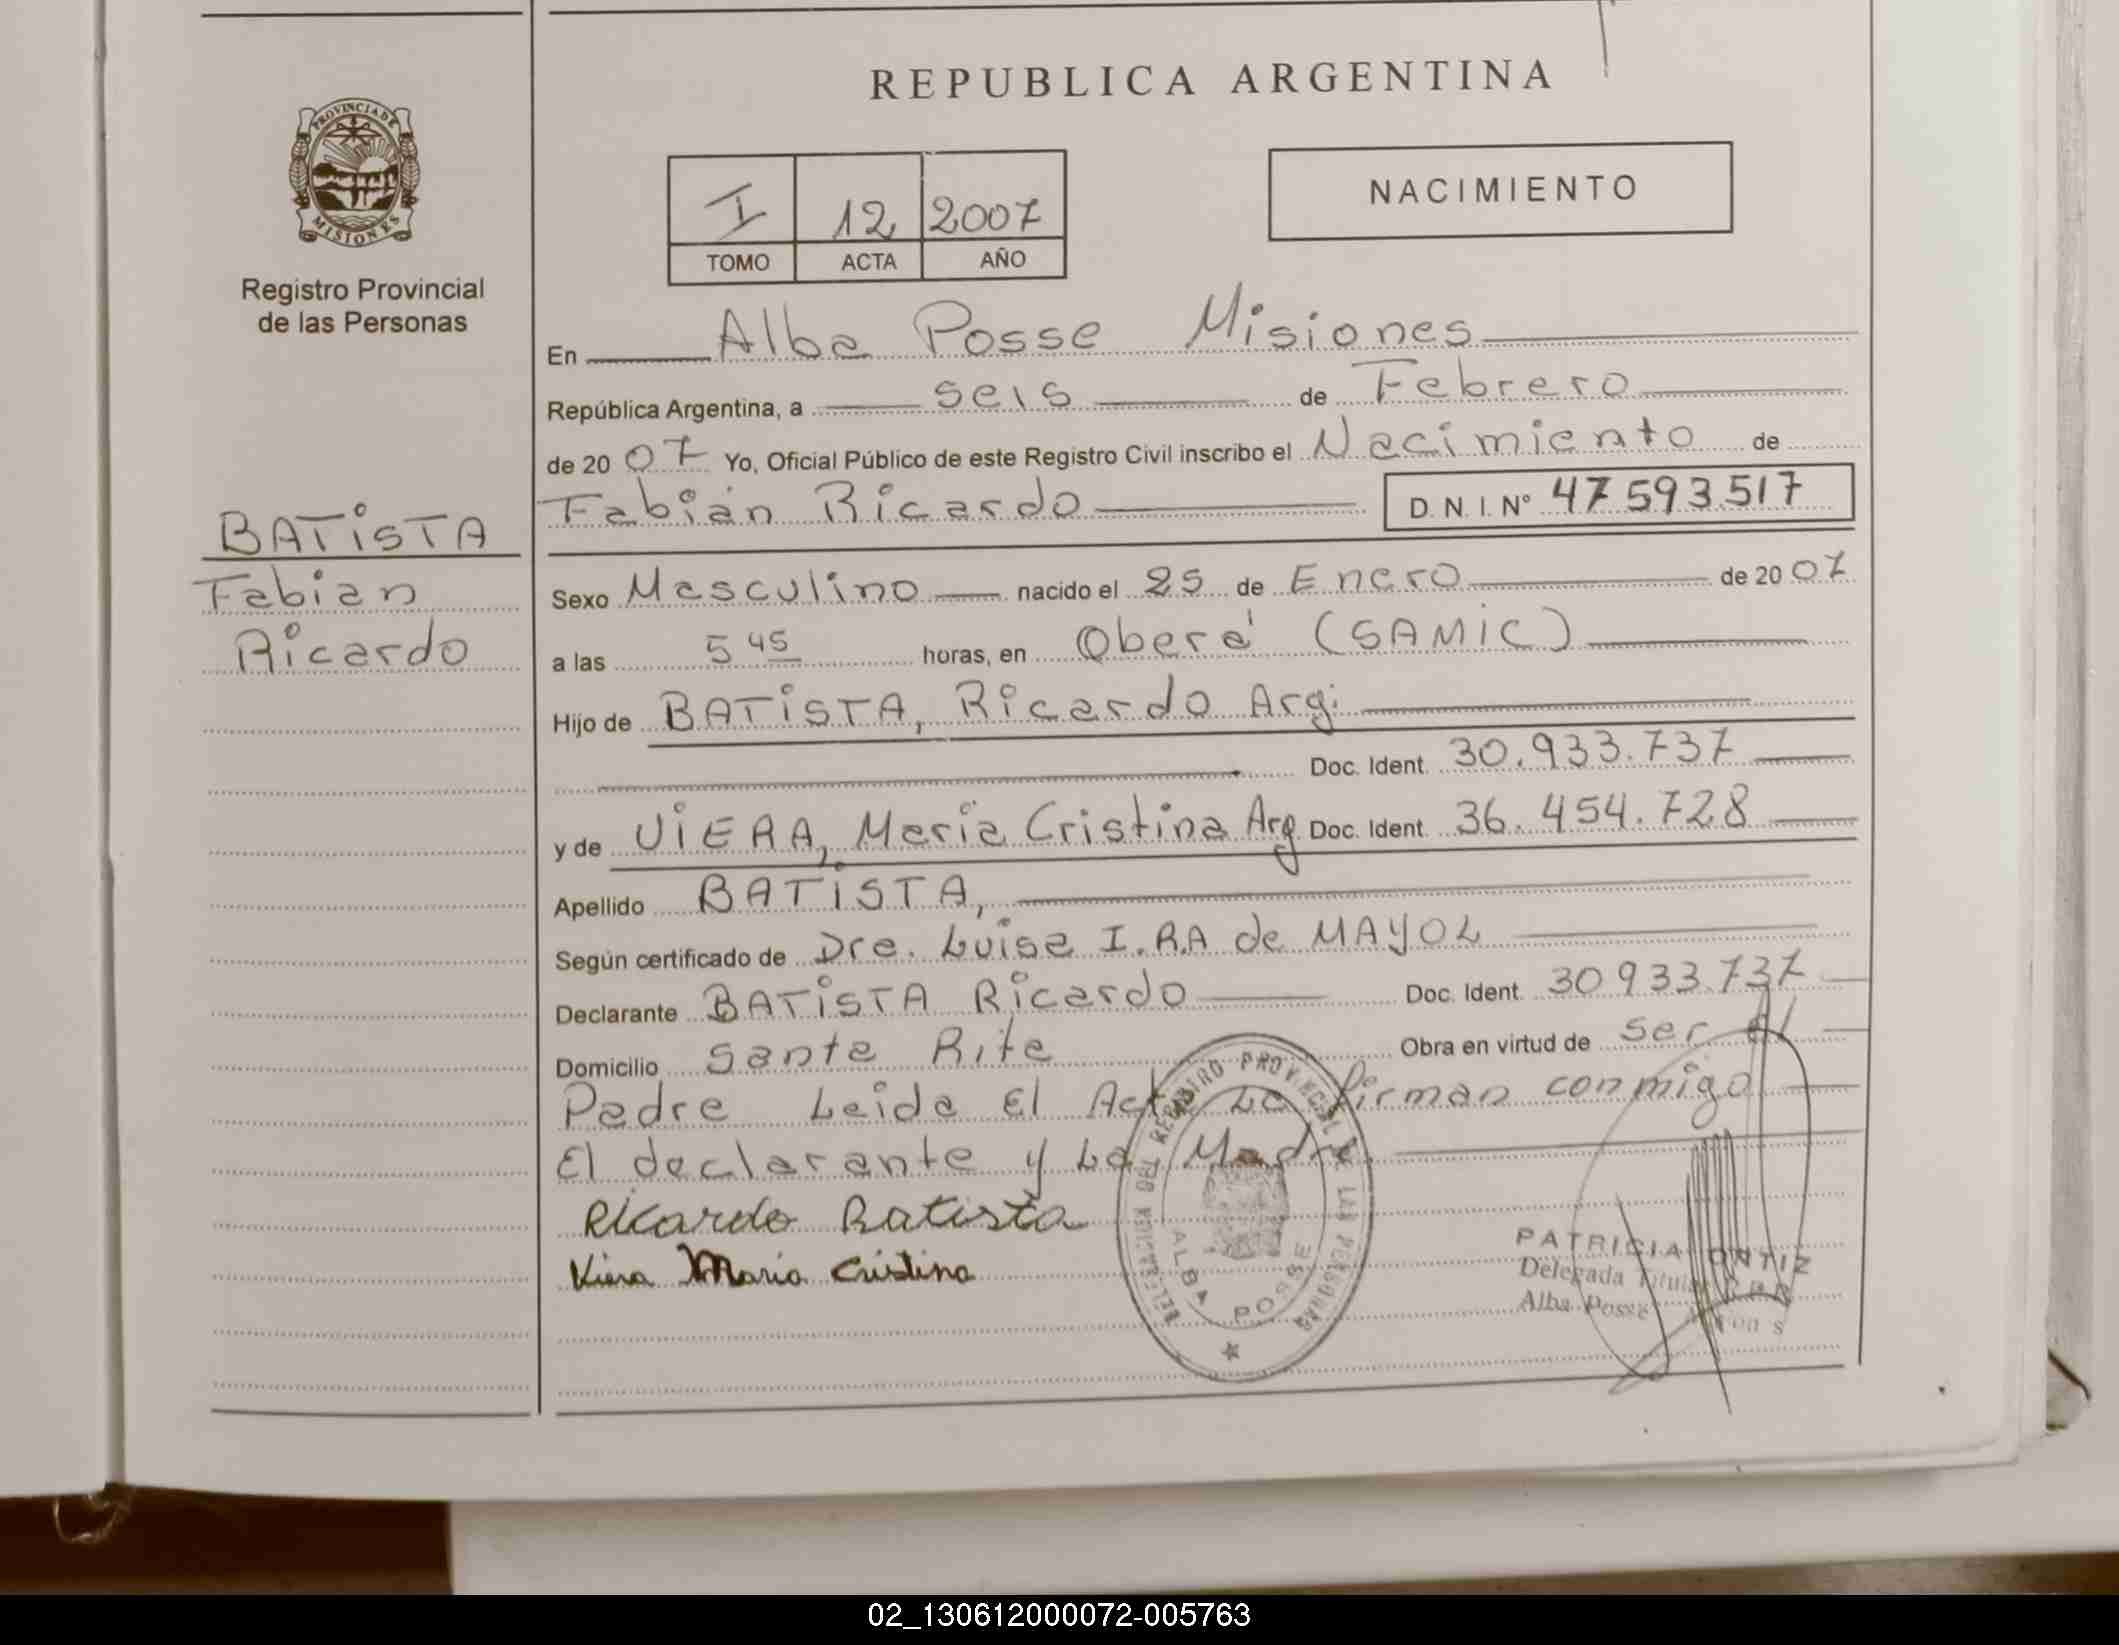 REPUBLICA ARGENTINA
PROVINCIA DE MISIONES
Registro Provincial
de las Personas
I 12 2007
TOMO ACTA AÑO
NACIMIENTO
BATISTA
Fabian
Ricardo
En Alba Posse Misiones
República Argentina, a seis de Febrero
de 20 07 Yo, Oficial Público de este Registro Civil inscribo el Nacimiento de
Fabián Ricardo D.N.I. Nº 47 593.517
Sexo Masculino nacido el 25 de Enero de 20 07
a las 5 45 horas, en Oberá (SAMIC)
Hijo de BATISTA, Ricardo Arg.
Doc. Ident. 30.933.737
y de VIERA, Maria Cristina Arg Doc. Ident. 36.454.728
Apellido BATISTA,
Según certificado de Dra. Luisa I.RA de MAYOL
Declarante BATISTA Ricardo Doc. Ident. 30 933.737
Domicilio Santa Rita Obra en virtud de ser el
Padre Leida El Acta La firman conmigo
El declarante y La Madre.
Ricardo Batista
Viera Maria Cristina
DELEGACION DEL REGISTRO PROVINCIAL DE LAS PERSONAS
ALBA POSSE
PATRICIA ORTIZ
Delegada Titular
Alba Posse
02_130612000072-005763